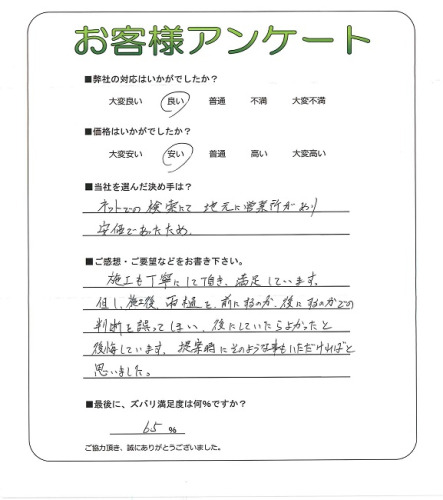 お客様アンケート
■弊社の対応はいかがでしたか？
大変良い 良い 普通 不満 大変不満
■価格はいかがでしたか？
大変安い 安い 普通 高い 大変高い
■当社を選んだ決め手は？
ネットでの検索にて 地元に営業所があり
安価であったため.
■ご感想・ご要望などをお書き下さい。
施工も丁寧にして頂き、満足しています。
但し、施工後、雨樋を、前にするのか、後にするのかでの
判断を誤ってしまい、後にしていたらよかったと
後悔しています。提案時にそのような事もいただければと
思いました。
■最後に、ズバリ満足度は何%ですか？
65 %
ご協力頂き、誠にありがとうございました。